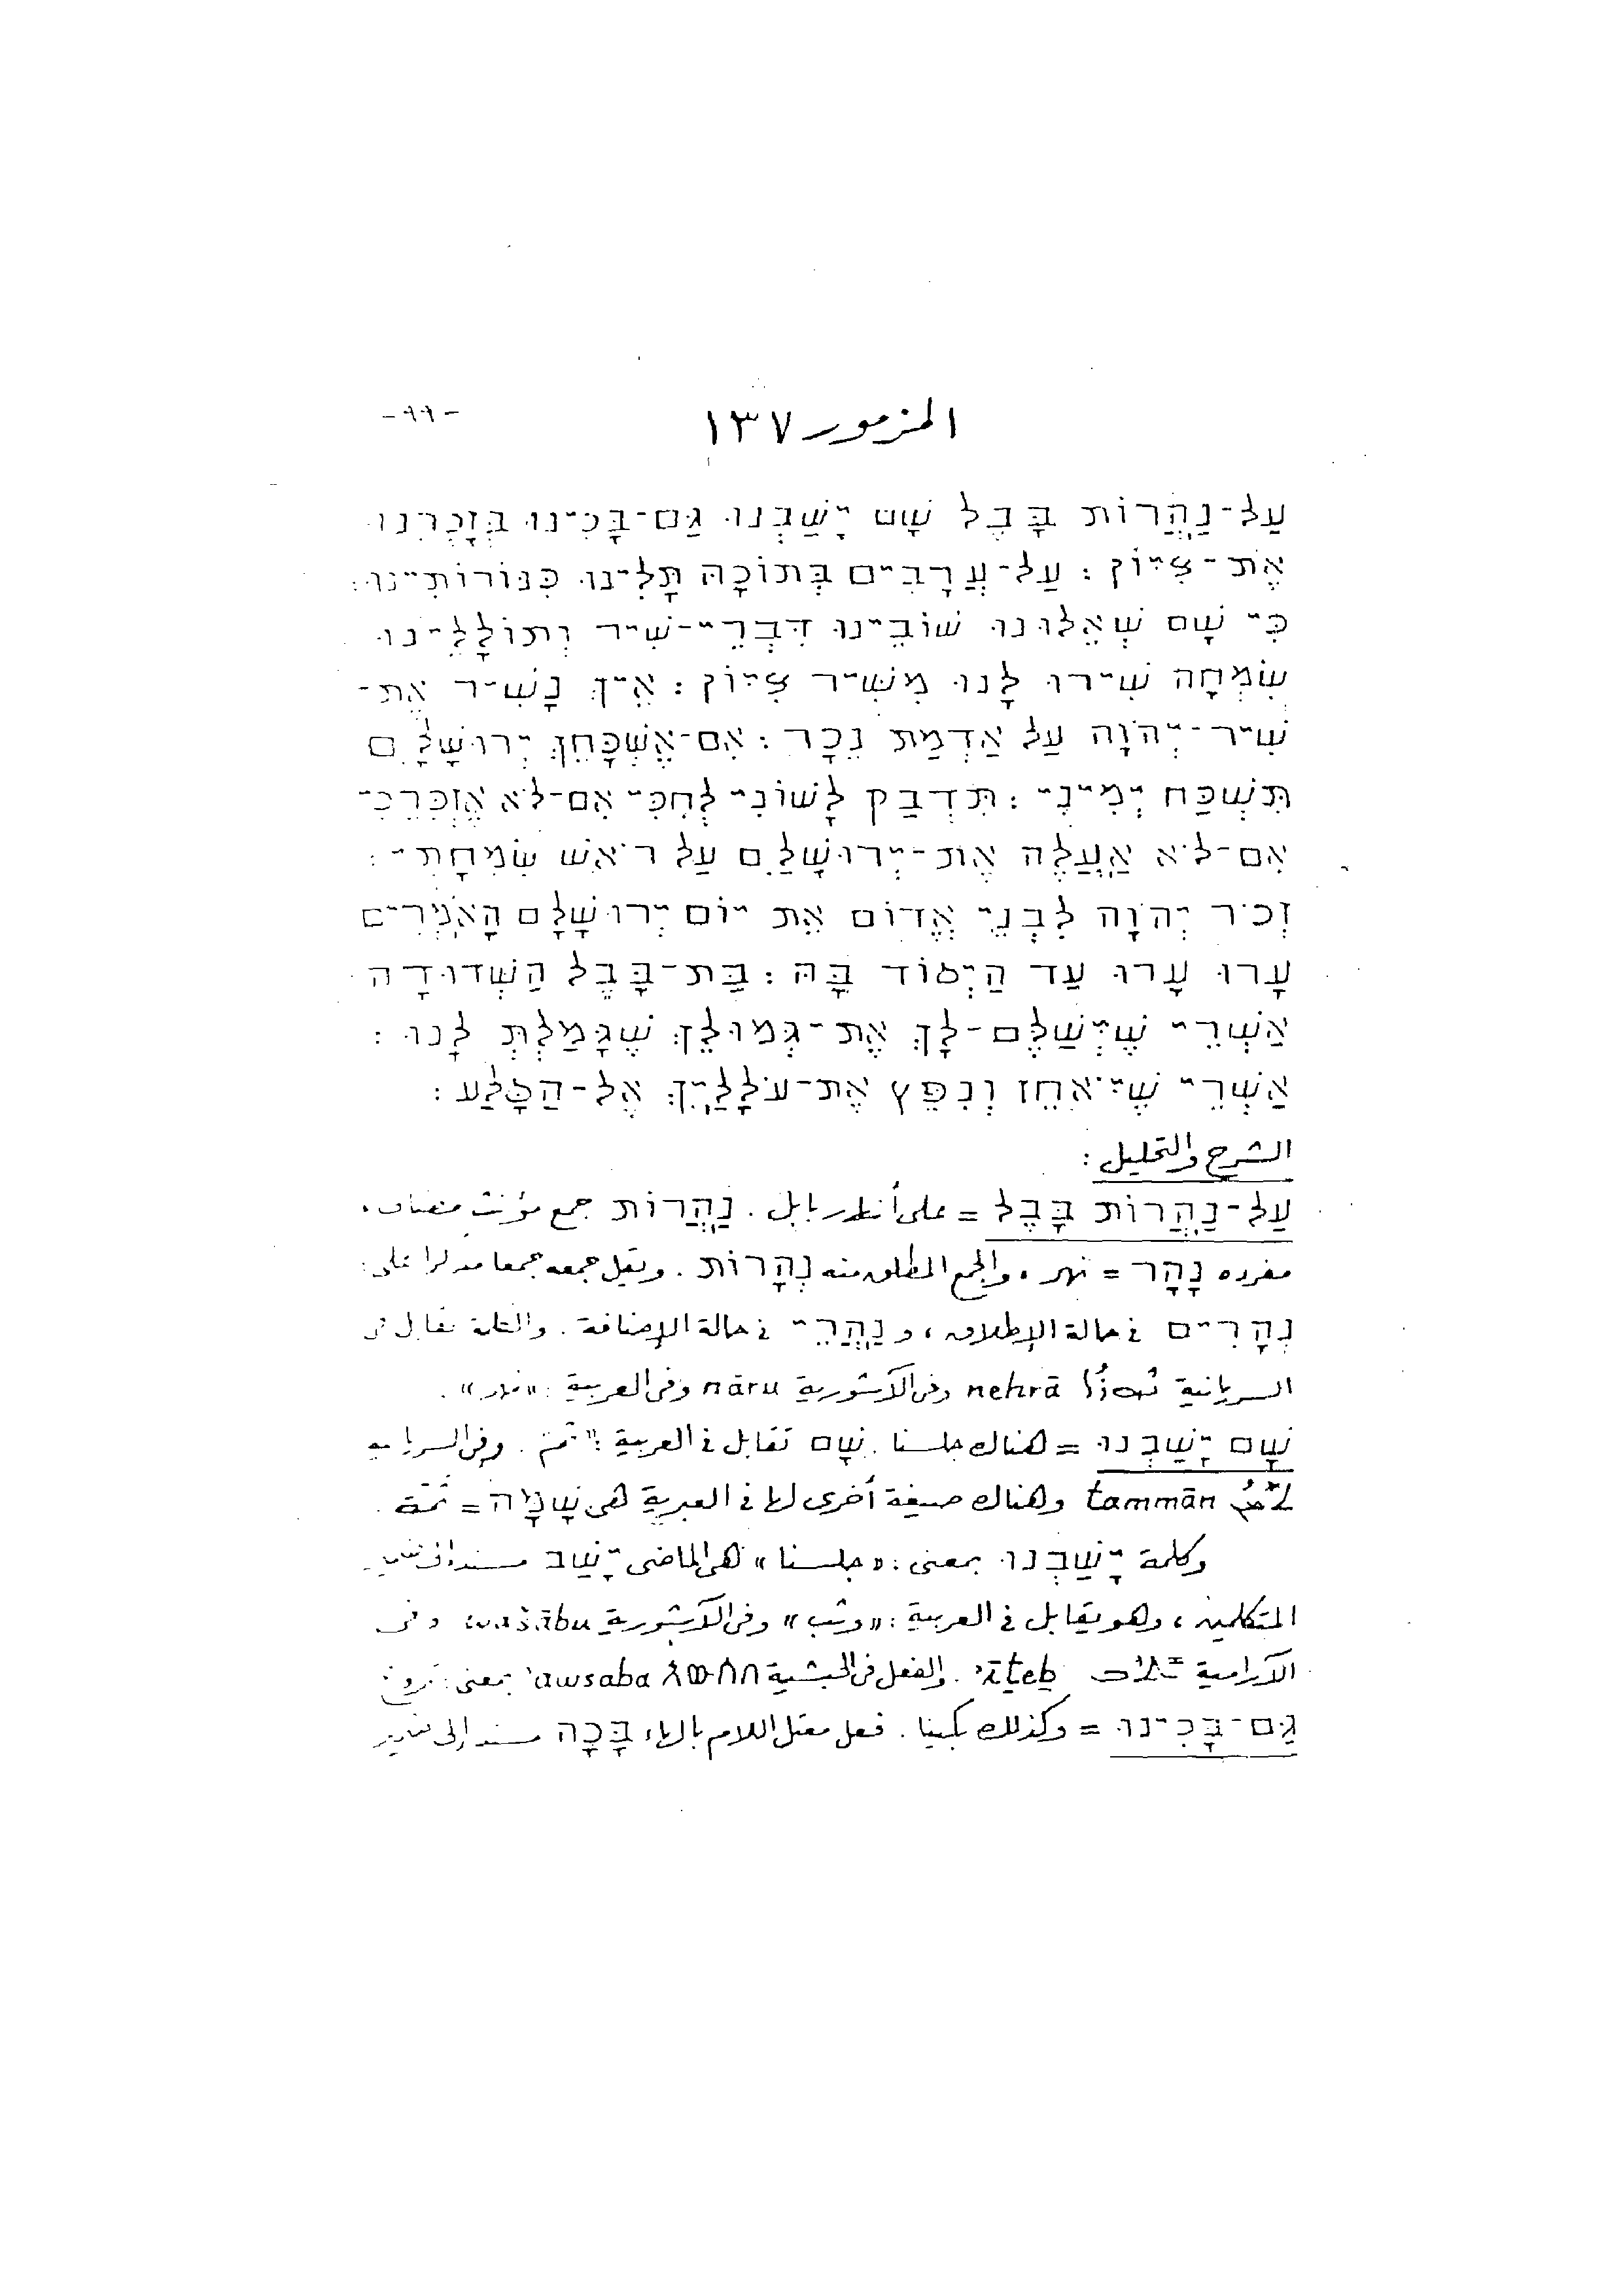 المزمور ١٣٧
- ٩٩ -
עַל-נַהֲרוֹת בָּבֶל שָׁם יָשַׁבְנוּ גַּם-בָּכִינוּ בְּזָכְרֵנוּ
אֶת-צִיּוֹן : עַל-עֲרָבִים בְּתוֹכָהּ תָּלִינוּ כִּנּוֹרוֹתֵינוּ :
כִּי שָׁם שְׁאֵלוּנוּ שׁוֹבֵינוּ דִּבְרֵי-שִׁיר וְתוֹלָלֵינוּ
שִׂמְחָה שִׁירוּ לָנוּ מִשִּׁיר צִיּוֹן : אֵיךְ נָשִׁיר אֶת-
שִׁיר-יְהֹוָה עַל אַדְמַת נֵכָר : אִם-אֶשְׁכָּחֵךְ יְרוּשָׁלִָם
תִּשְׁכַּח יְמִינִי : תִּדְבַּק לָשׁוֹנִי לְחִכִּי אִם-לֹא אֶזְכְּרֵכִי
אִם-לֹא אַעֲלֶה אֶת-יְרוּשָׁלִַם עַל רֹאשׁ שִׂמְחָתִי :
זְכֹר יְהֹוָה לִבְנֵי אֱדוֹם אֵת יוֹם יְרוּשָׁלִָם הָאֹמְרִים
עָרוּ עָרוּ עַד הַיְסוֹד בָּהּ : בַּת-בָּבֶל הַשְּׁדוּדָה
אַשְׁרֵי שֶׁיְשַׁלֶּם-לָךְ אֶת-גְּמוּלֵךְ שֶׁגָּמַלְתְּ לָנוּ :
אַשְׁרֵי שֶׁיֹּאחֵז וְנִפֵּץ אֶת-עֹלָלַיִךְ אֶל-הַסָּלַע :
الشرح والتحليل :
עַל-נַהֲרוֹת בָּבֶל = على أنهار بابل . נַהֲרוֹת جمع مؤنث مضاف ،
مفرده נָהָר = نهر ، والجمع المطلق منه נְהָרוֹת . ويقل جمعه جمعا مذكرا على :
נְהָרִים في حالة الإطلاق ، و נַהֲרֵי في حالة الإضافة . والكلمة تقابل في
السريانية ܢܗܪܐ nehrā وفى الآشورية nāru وفى العربية : «نهر» .
שָׁם יָשַׁבְנוּ = هناك جلسنا . שָׁם تقابل في العربية : ثَمَّ . وفى السريانية
ܬܡܢ tammān وهناك صيغة أخرى لها في العبرية هى שָׁמָּה = ثَمَّة .
وكلمة יָשַׁבְנוּ بمعنى : «جلسنا» هى الماضى יָשַׁב مسندا لضمير
المتكلمين ، وهو يقابل في العربية : «وثب» وفى الآشورية wašābu وفى
الآرامية ܝܬܒ īteb . والفعل فى الحبشية አውሰበ awsaba بمعنى : تزوج
גַּם-בָּכִינוּ = وكذلك بكينا . فعل معتل اللام بالهاء בָּכָה مسند إلى ضمير